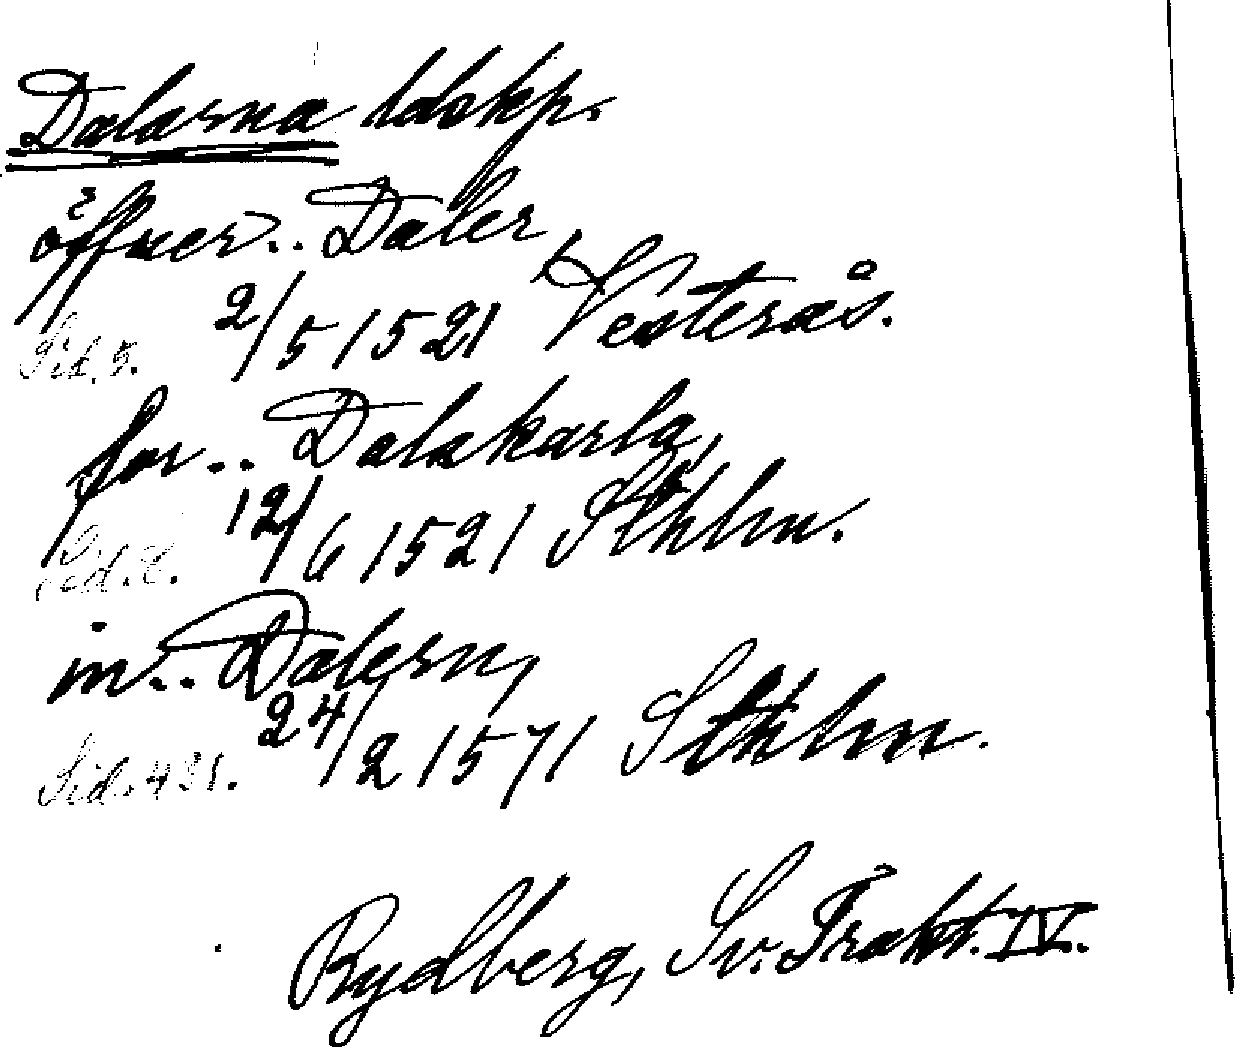 Dalarna ldskp.
öffuer.. Daler,
2/5 1521 Vesterås.
Sid. 5.
for.. Dalakarla,
12/6 1521 Sthlm.
Sid. 8.
in.. Dalern,
24/2 1571 Sthlm.
Sid. 431.
Rydberg, Sv. Trakt. IV.